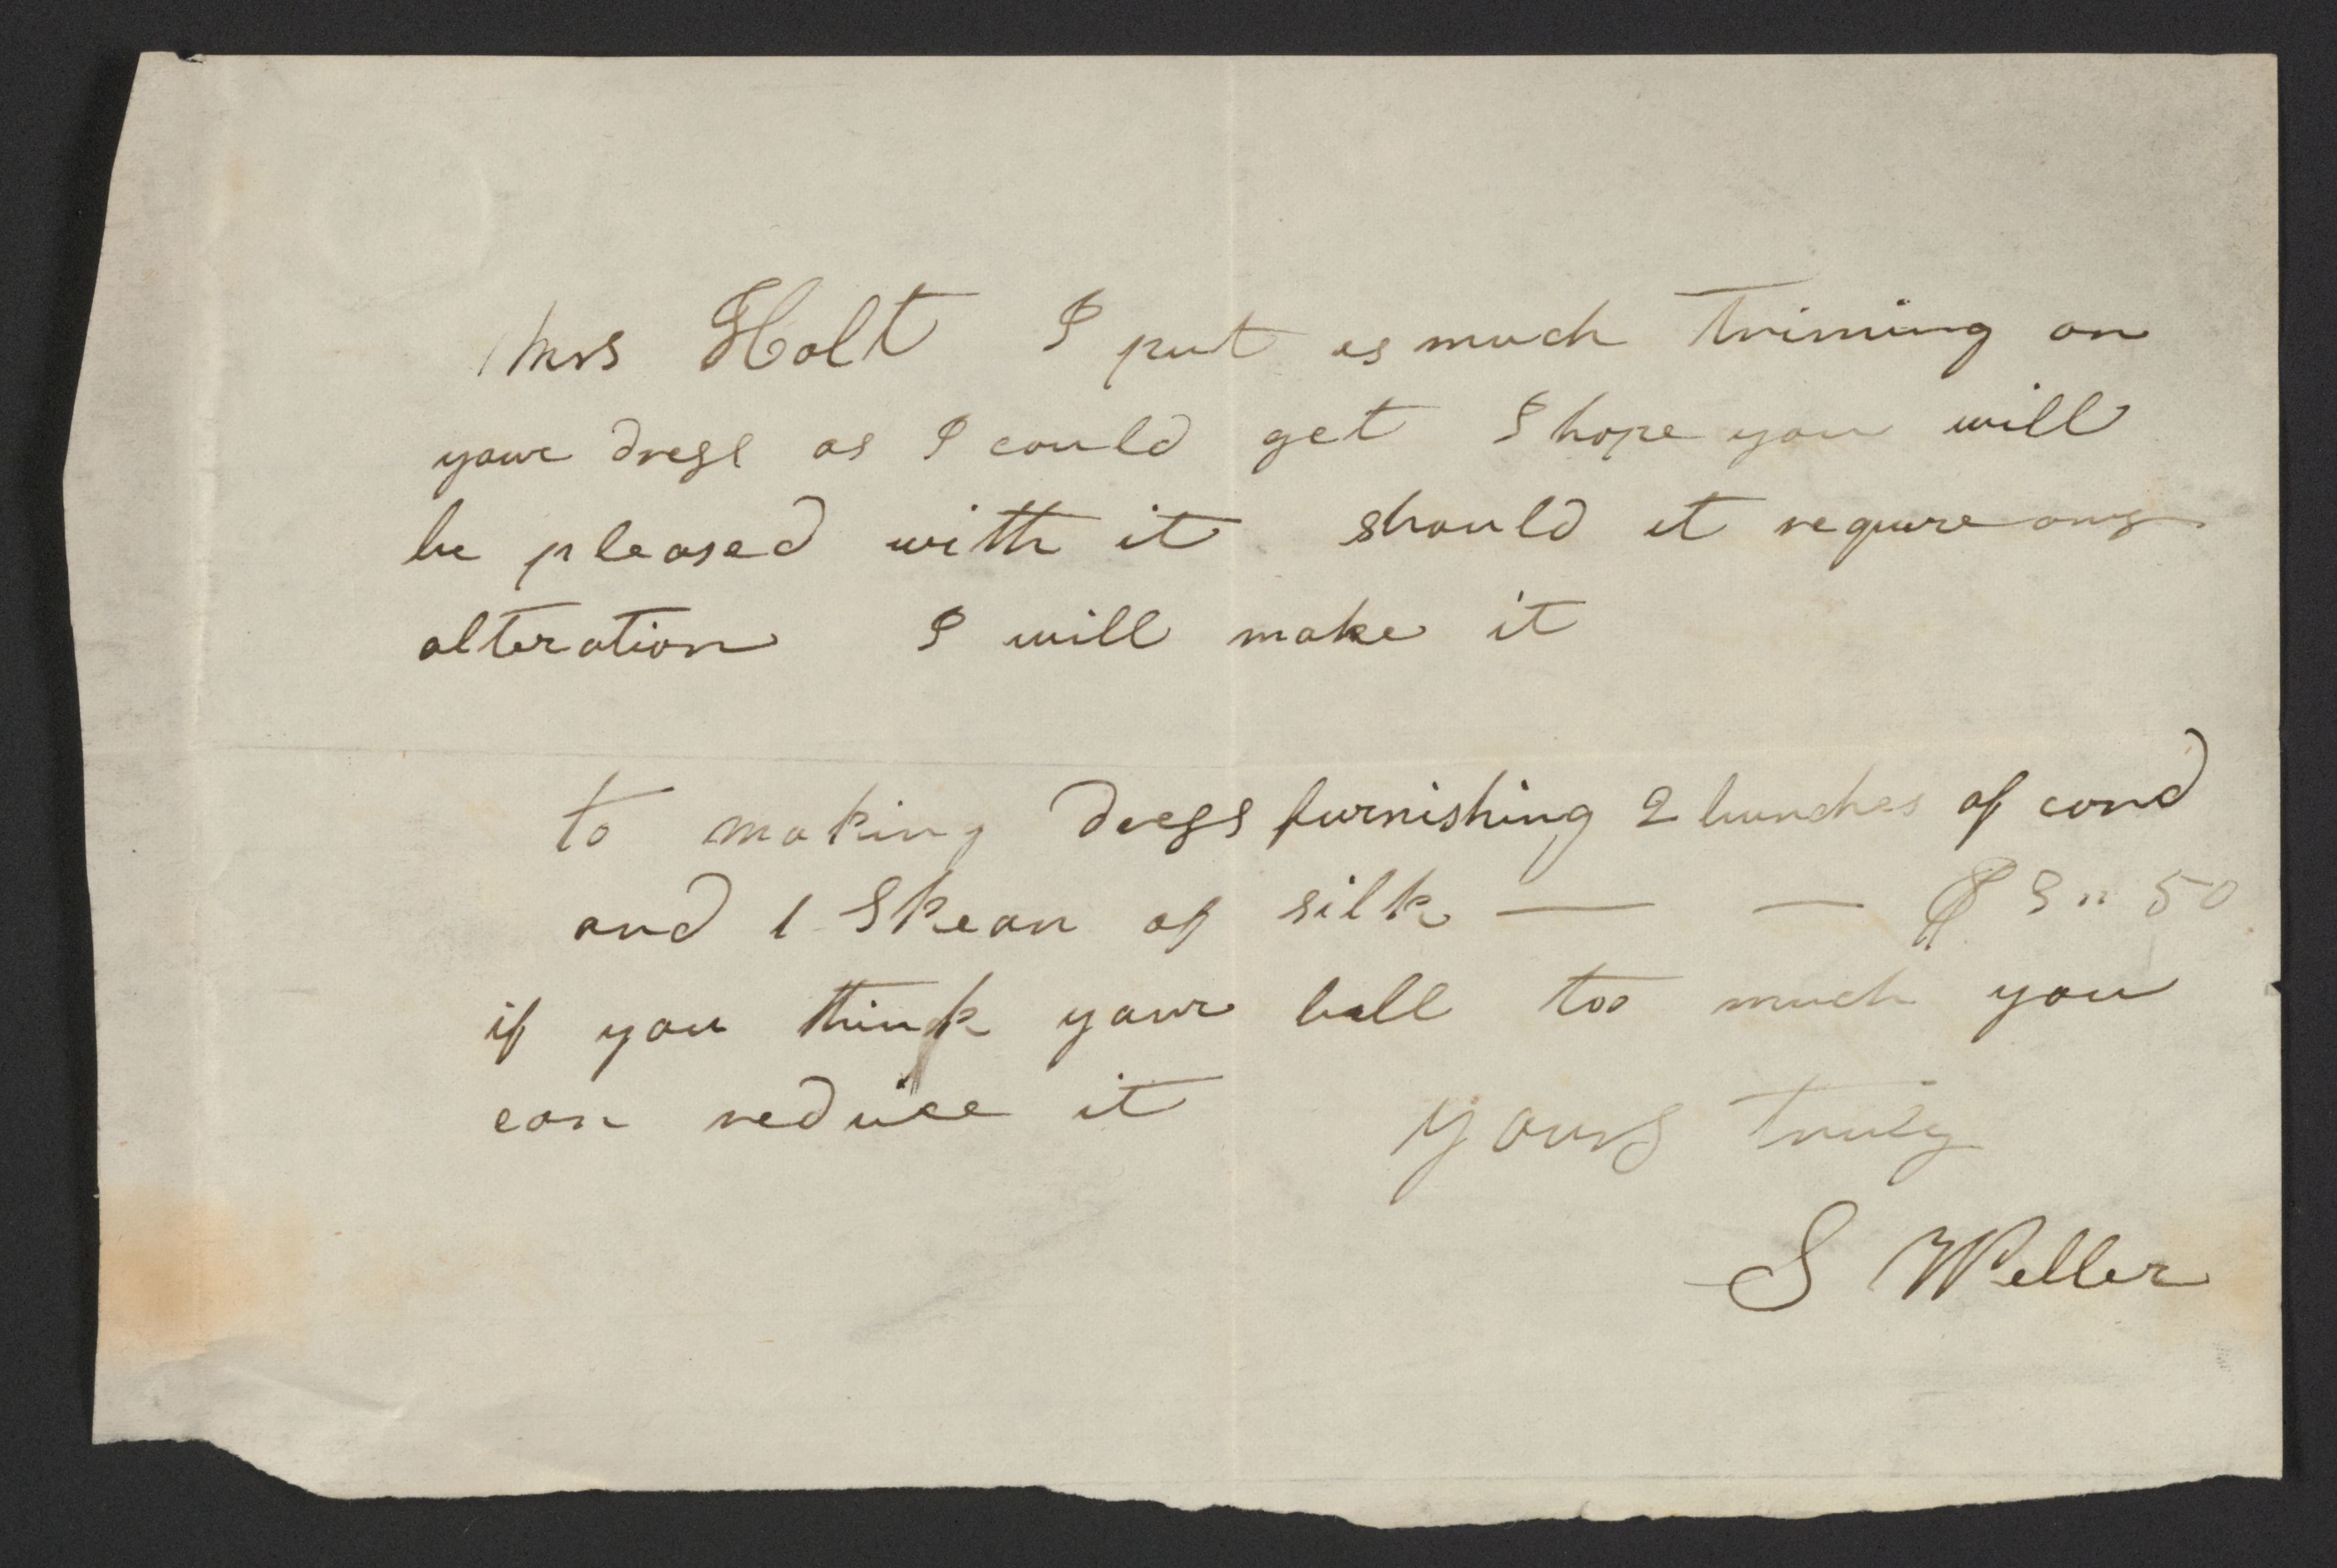 Mrs Holt I put as much triming on
your dress as I could get I hope you will
be pleased with it should it require any
alteration I will make it
to making dress furnishing 2 bunches of cord
and 1 Skean of silk — — $ 3 " 50
if you think your bill too much you
can reduce it yours truly
S Weller